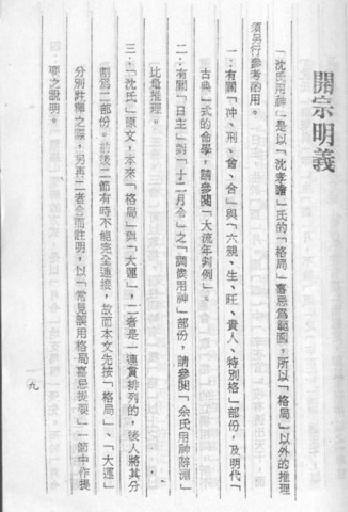 開宗明義
「沈氏用神」是以「沈孝瞻」氏的「格局」喜忌為範圍,所以「格局」以外的推理
須另行參考的用。
一:有關「沖、刑、會、合」與「六親、生、旺、貴人、特別格」部份,及明代「
古典」式的命學,請參閱「大流年判例」。
二:有關「日主」對「十二月令」之「調候用神」部份,請參閱「余氏用神辭淵」
比電推理。
三:「沈氏」原文,本來「格局」與「大運」,二者是一連貫排列的,後人將其分
割為二部份。前後二節有時不能完全連接,故而本文先按「格局」、「大運」
分別註釋之際,另再二者合而註明,以「常見誤用格局喜忌提要」一節中作提
要之說明。
九